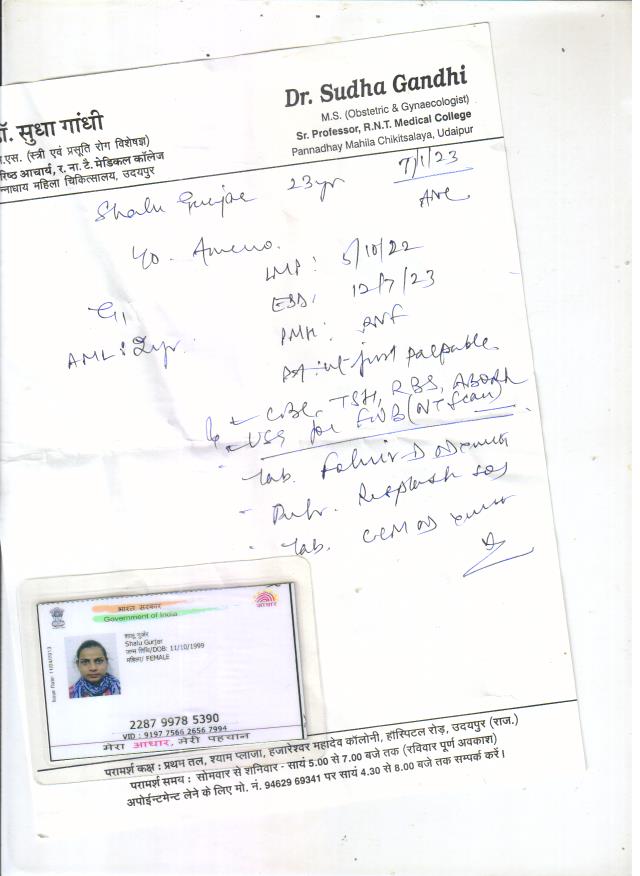 Dr. Sudha Gandhi
M.S. (Obstetric & Gynaecologist)
Sr. Professor, R.N.T. Medical College
Pannadhay Mahila Chikitsalaya, Udaipur
ॉ. सुधा गांधी
.एस. (स्त्री एवं प्रसूति रोग विशेषज्ञ)
रिष्ठ आचार्य, र. ना. टै. मेडिकल कॉलेज
न्नाधाय महिला चिकित्सालय, उदयपुर
7/1/23
Shalu Gurjar 23yr
ANC
LMP: 5/10/22
EDD: 12/7/23
G1
PMH:
AML: 2yr.
just palpable
CBC, TSH, RBS, ABORh
USG for (NT Scan)
Tab.
SOS
Tab.
भारत सरकार
Government of India
आधार
शालू गुर्जर
Shalu Gurjar
जन्म तिथि/DOB: 11/10/1999
महिला/ FEMALE
2287 9978 5390
VID : 9197 7566 2656 7994
मेरा आधार, मेरी पहचान
परामर्श कक्ष : प्रथम तल, श्याम प्लाजा, हजारेश्वर महादेव कॉलोनी, हॉस्पिटल रोड़, उदयपुर (राज.)
परामर्श समय : सोमवार से शनिवार - सायं 5.00 से 7.00 बजे तक (रविवार पूर्ण अवकाश)
अपोईन्टमेन्ट लेने के लिए मो. नं. 94629 69341 पर सायं 4.30 से 8.00 बजे तक सम्पर्क करें।